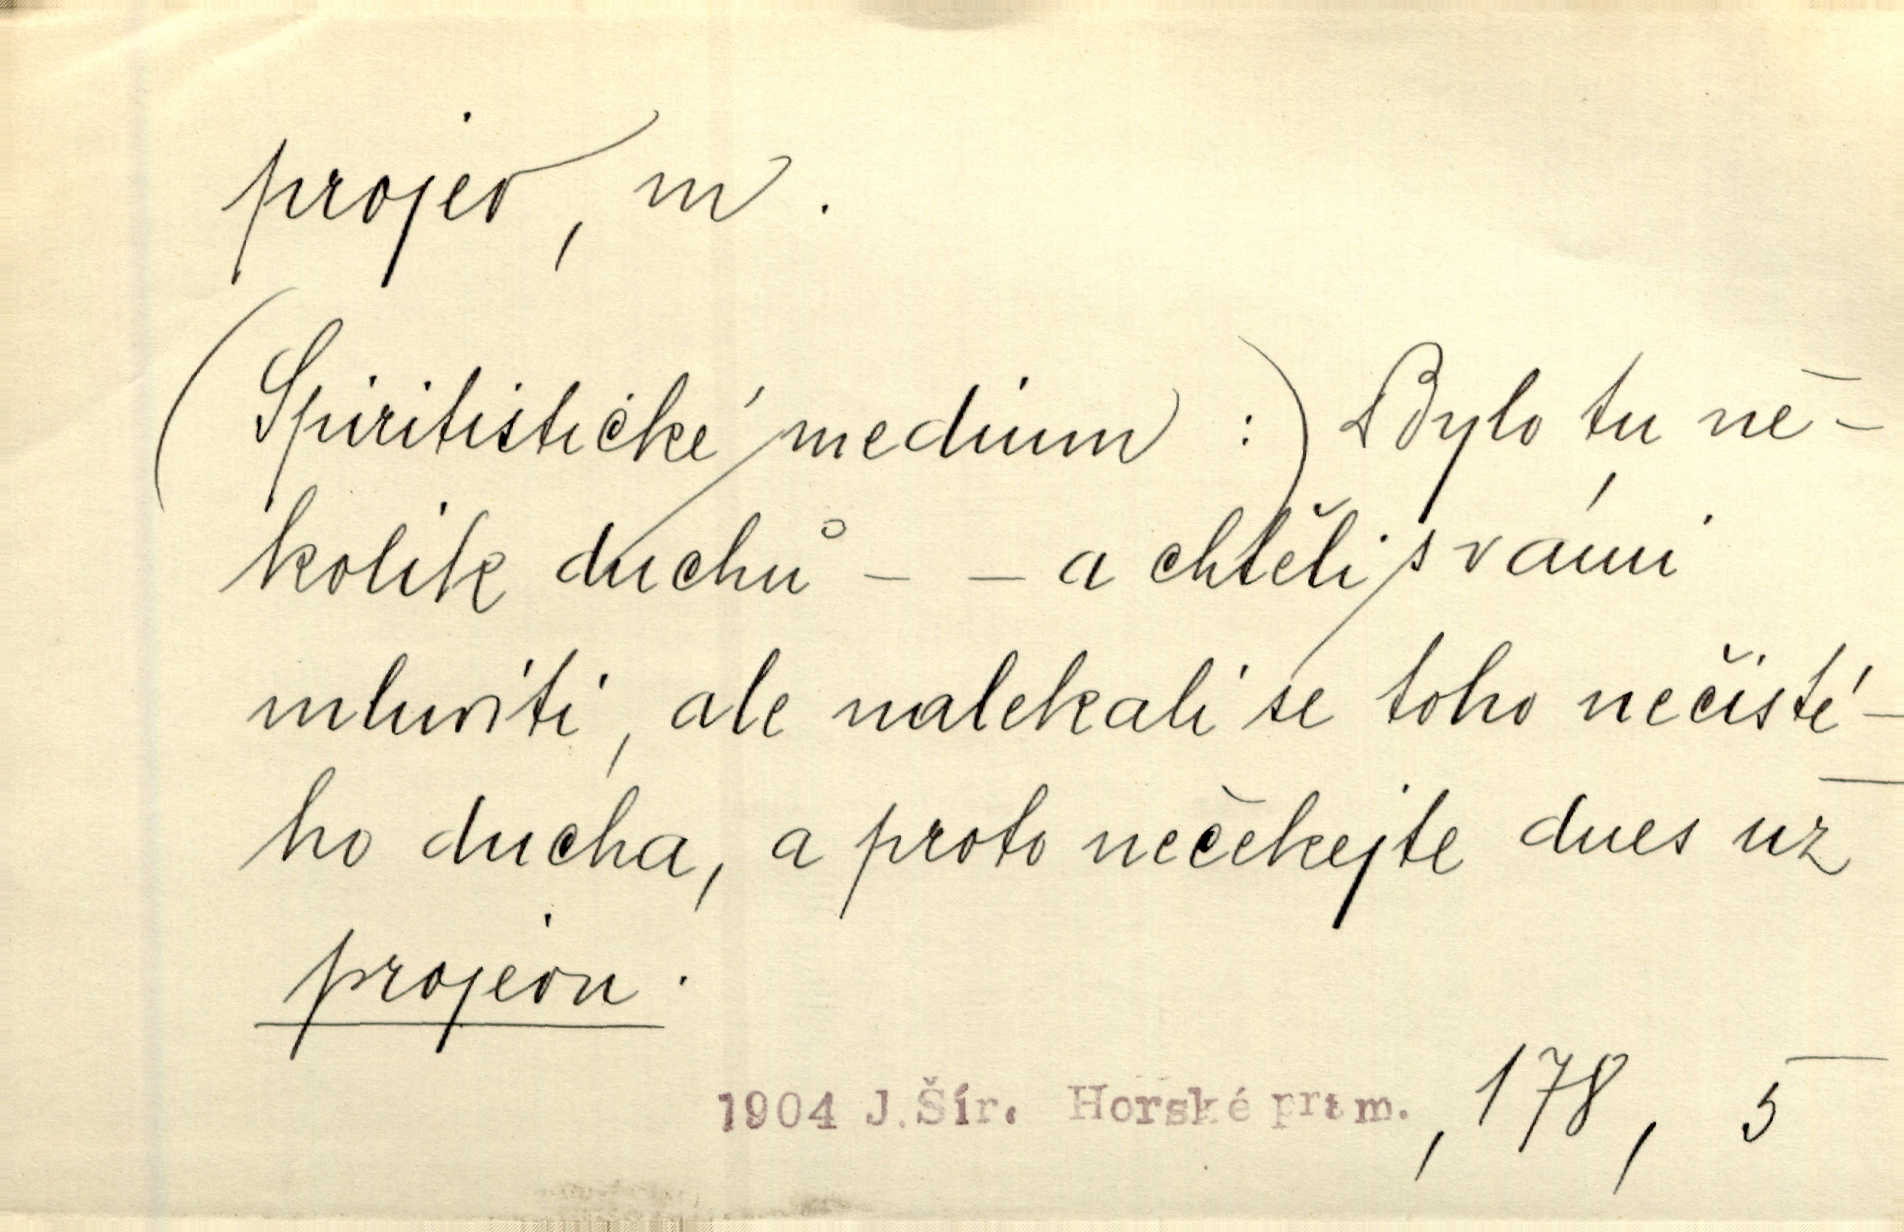 projev, m.
(Spiritistické medium:) Bylo tu ně-
kolik duchů - - a chtěli s vámi
mluviti, ale nalekali se toho nečisté-
ho ducha, a proto nečekejte dnes už
projevu.
1904 J.Šír. Horské pram., 178, 5